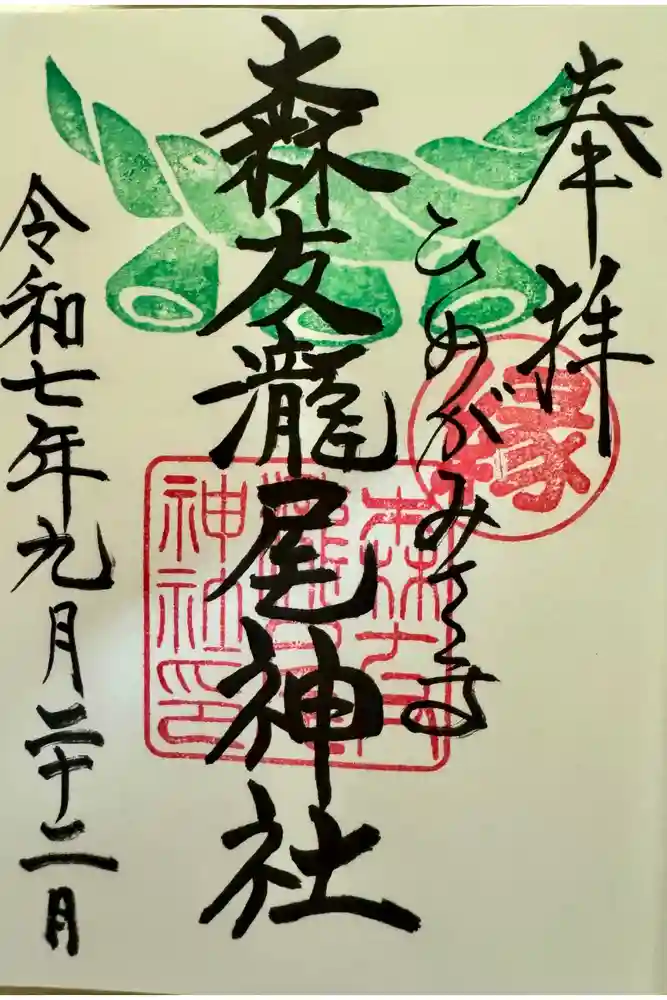 奉拝
縁
ひめがみてらす
森友瀧尾神社
森友瀧尾神社印
令和七年九月二十二月